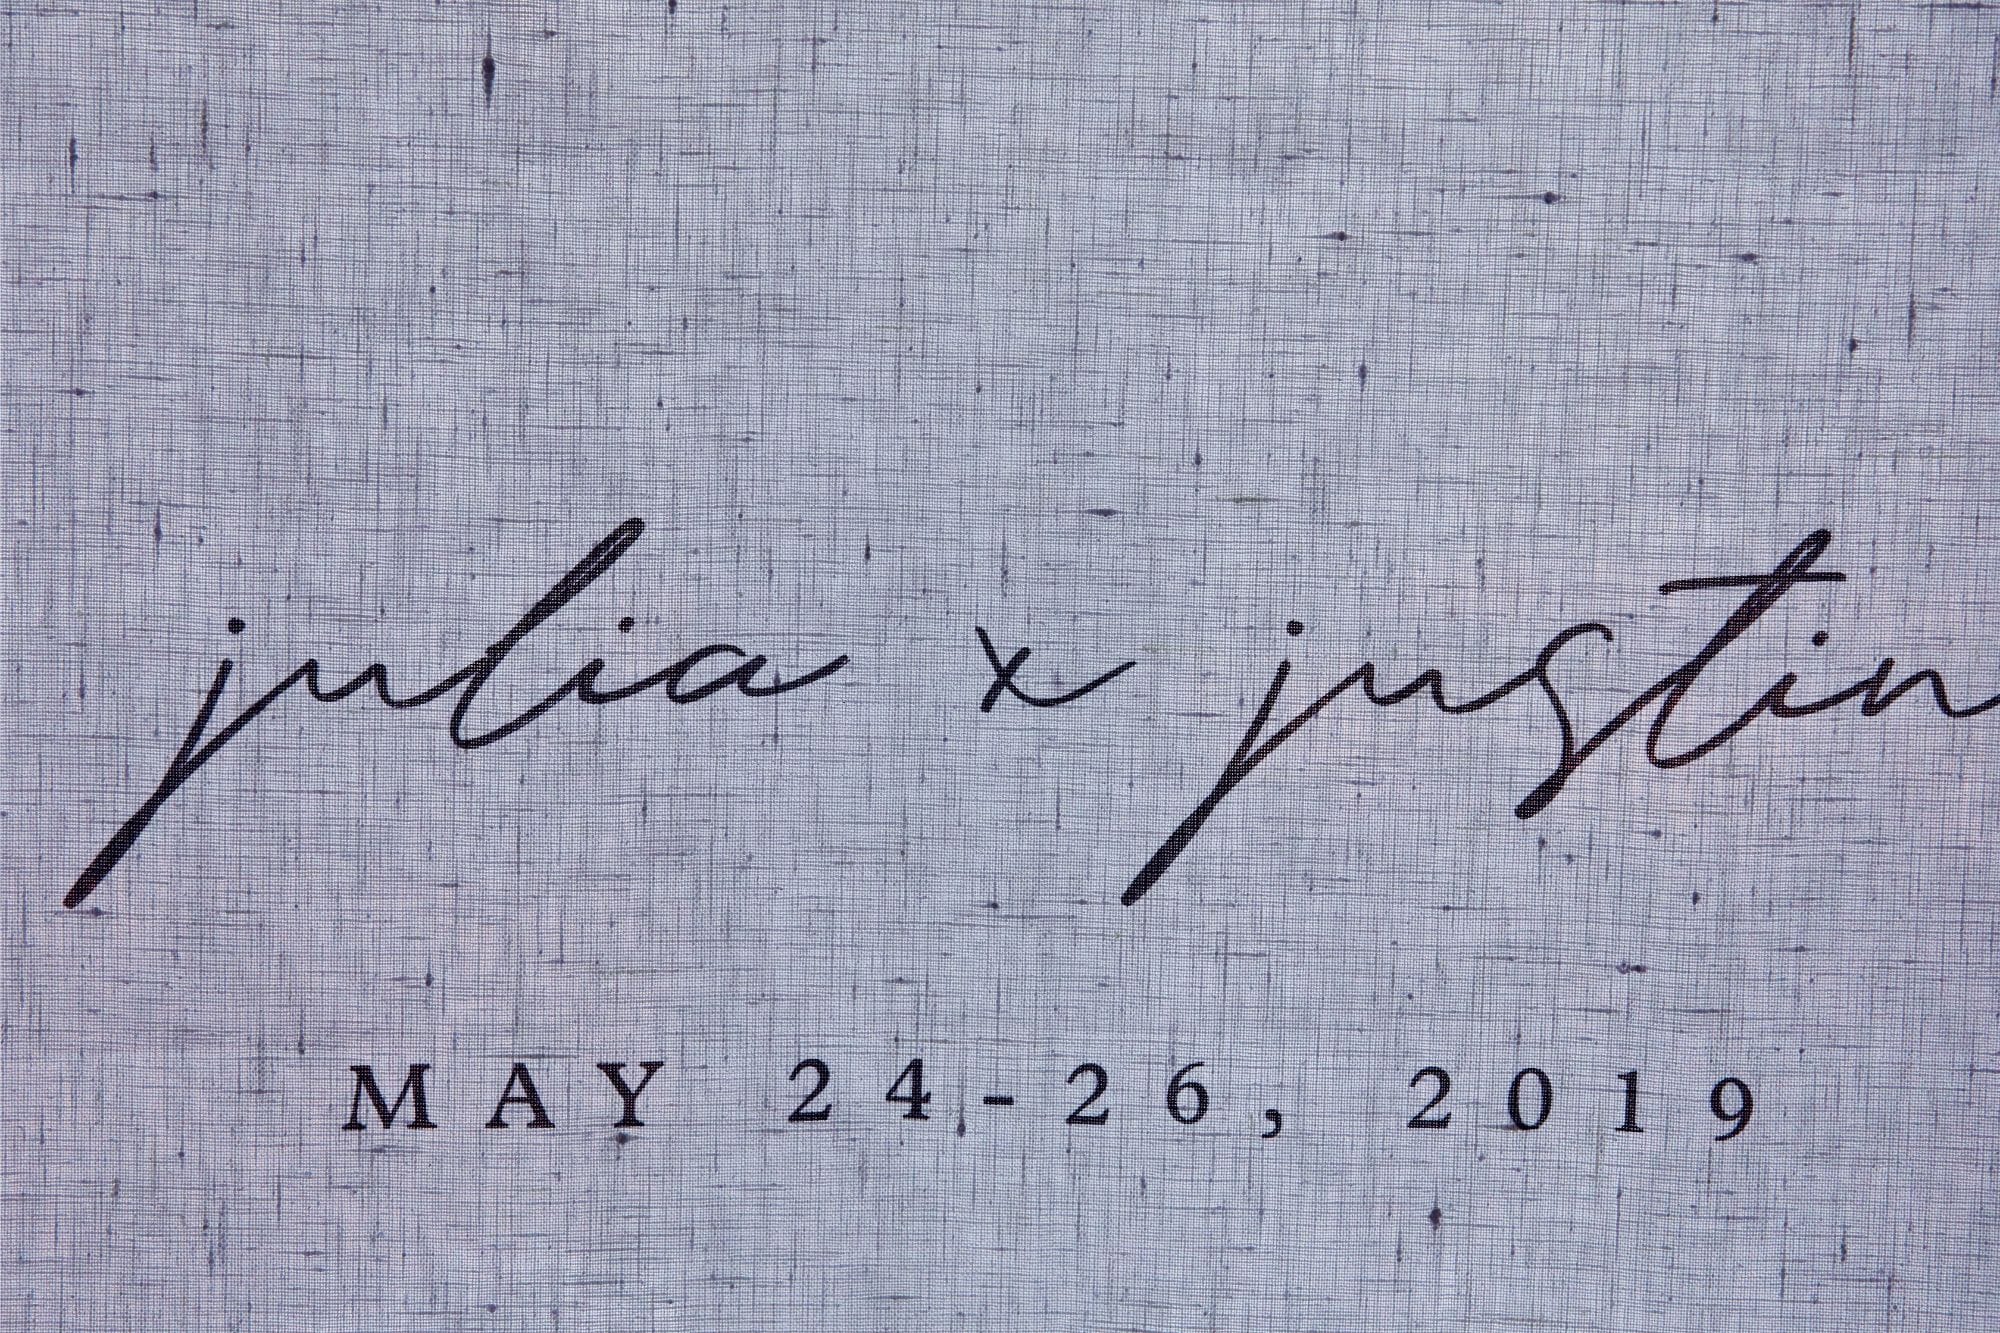 julia x justin
MAY 24-26, 2019